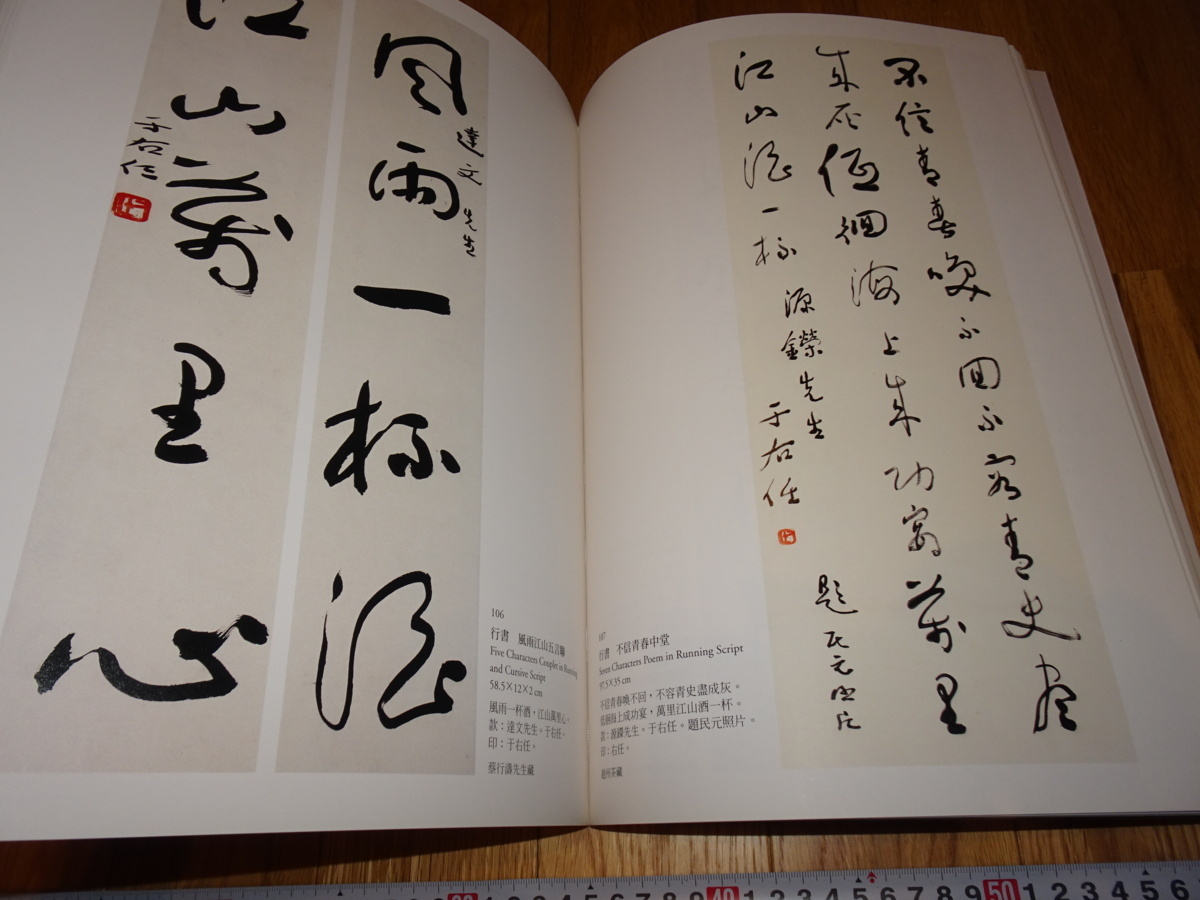 風雨一杯酒
達文先生
江山萬里心
于右任
106
行書 風雨江山五言聯
Five Characters Couplet in Running
and Cursive Script
58.5×12×2 cm
風雨一杯酒,江山萬里心。
款:達文先生。于右任。
印:于右任。
蔡行濤先生藏
不信青春喚不回不容青史盡
成灰低徊海上成功宴萬里
江山酒一杯
源鑅先生
于右任
題民元照片
107
行書 不信青春中堂
Seven Characters Poem in Running Script
97.5×35 cm
不信青春喚不回,不容青史盡成灰。
低徊海上成功宴,萬里江山酒一杯。
款:源鑅先生。于右任。題民元照片。
印:右任。
40 1 2 3 4 5 6 7 8 9 50 1 2 3 4 5 6